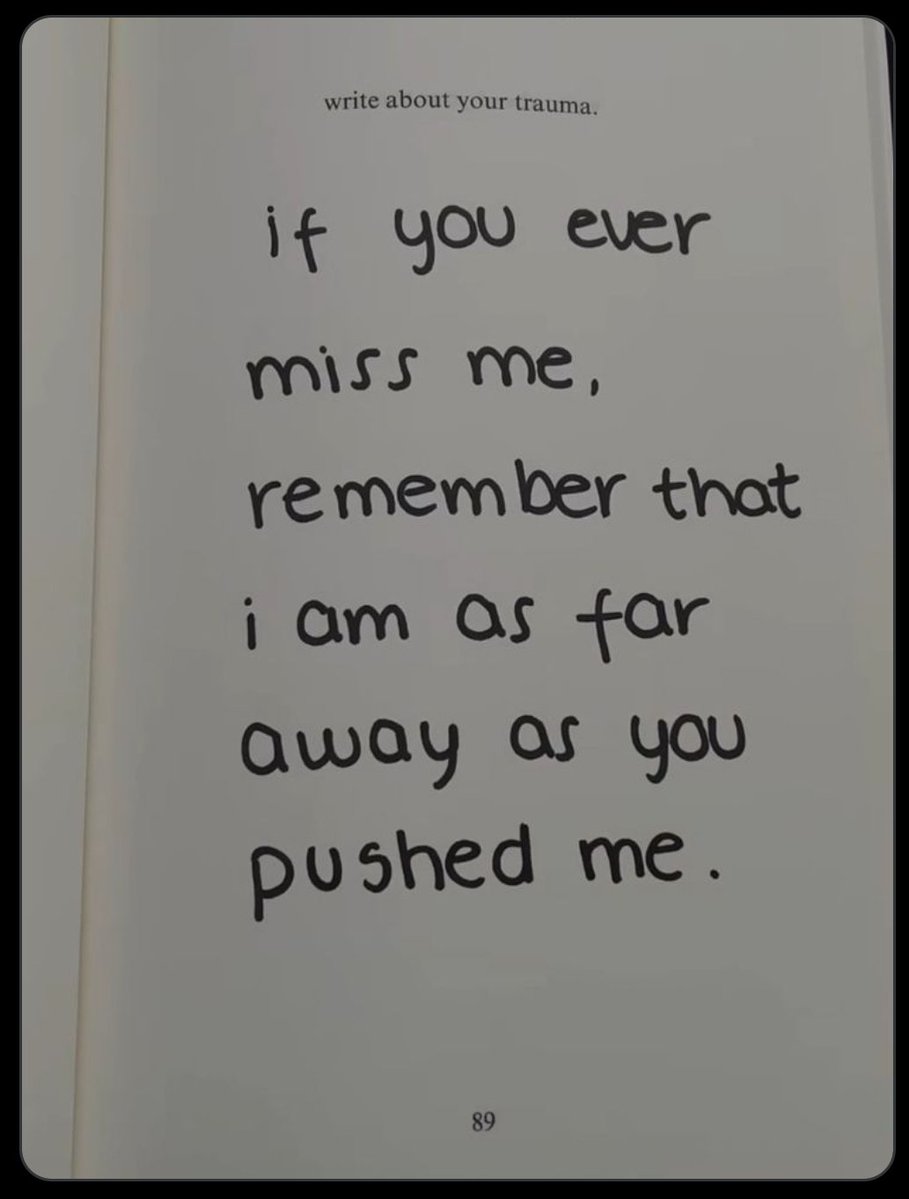 write about your trauma.
if you ever
miss me,
remember that
i am as far
away as you
pushed me.
89